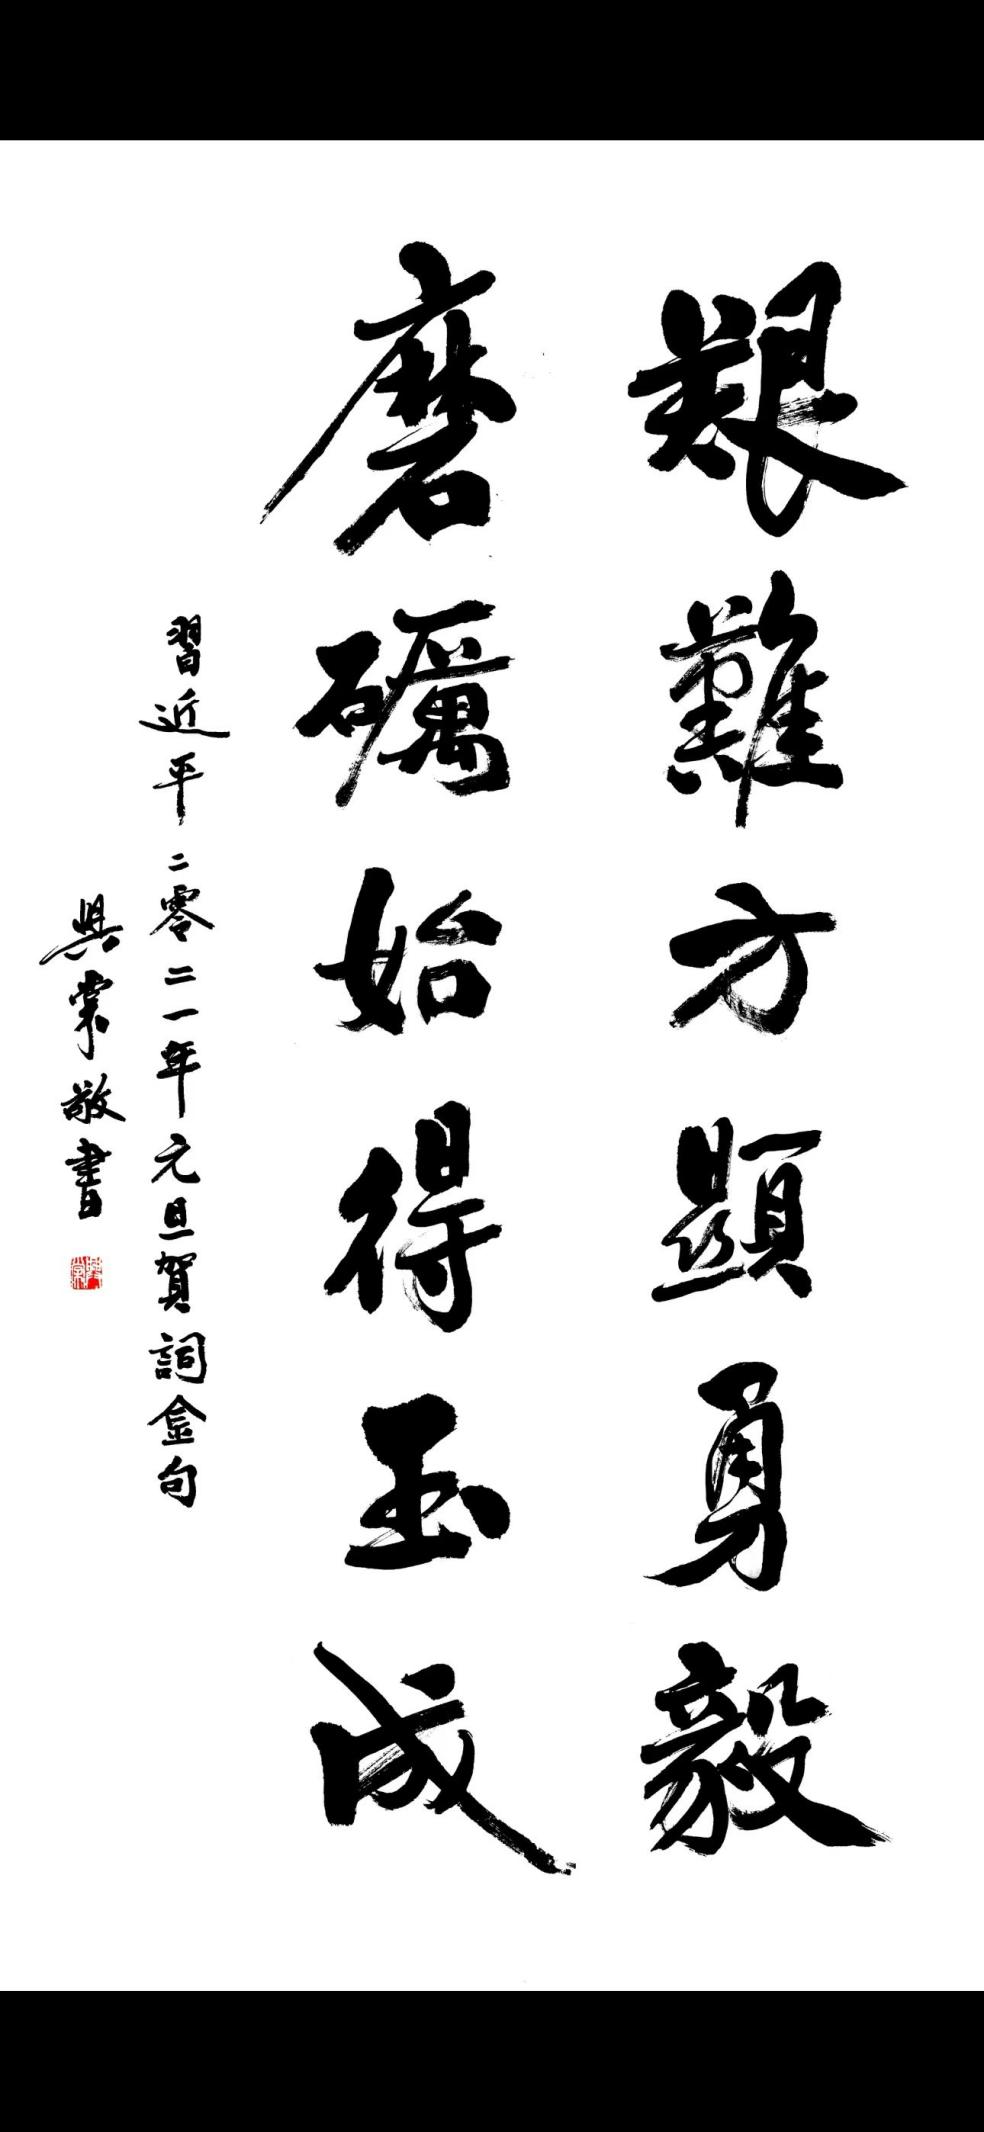 艱難方顯勇毅
磨礪始得玉成
習近平二零二一年元旦賀詞金句
興棠敬書